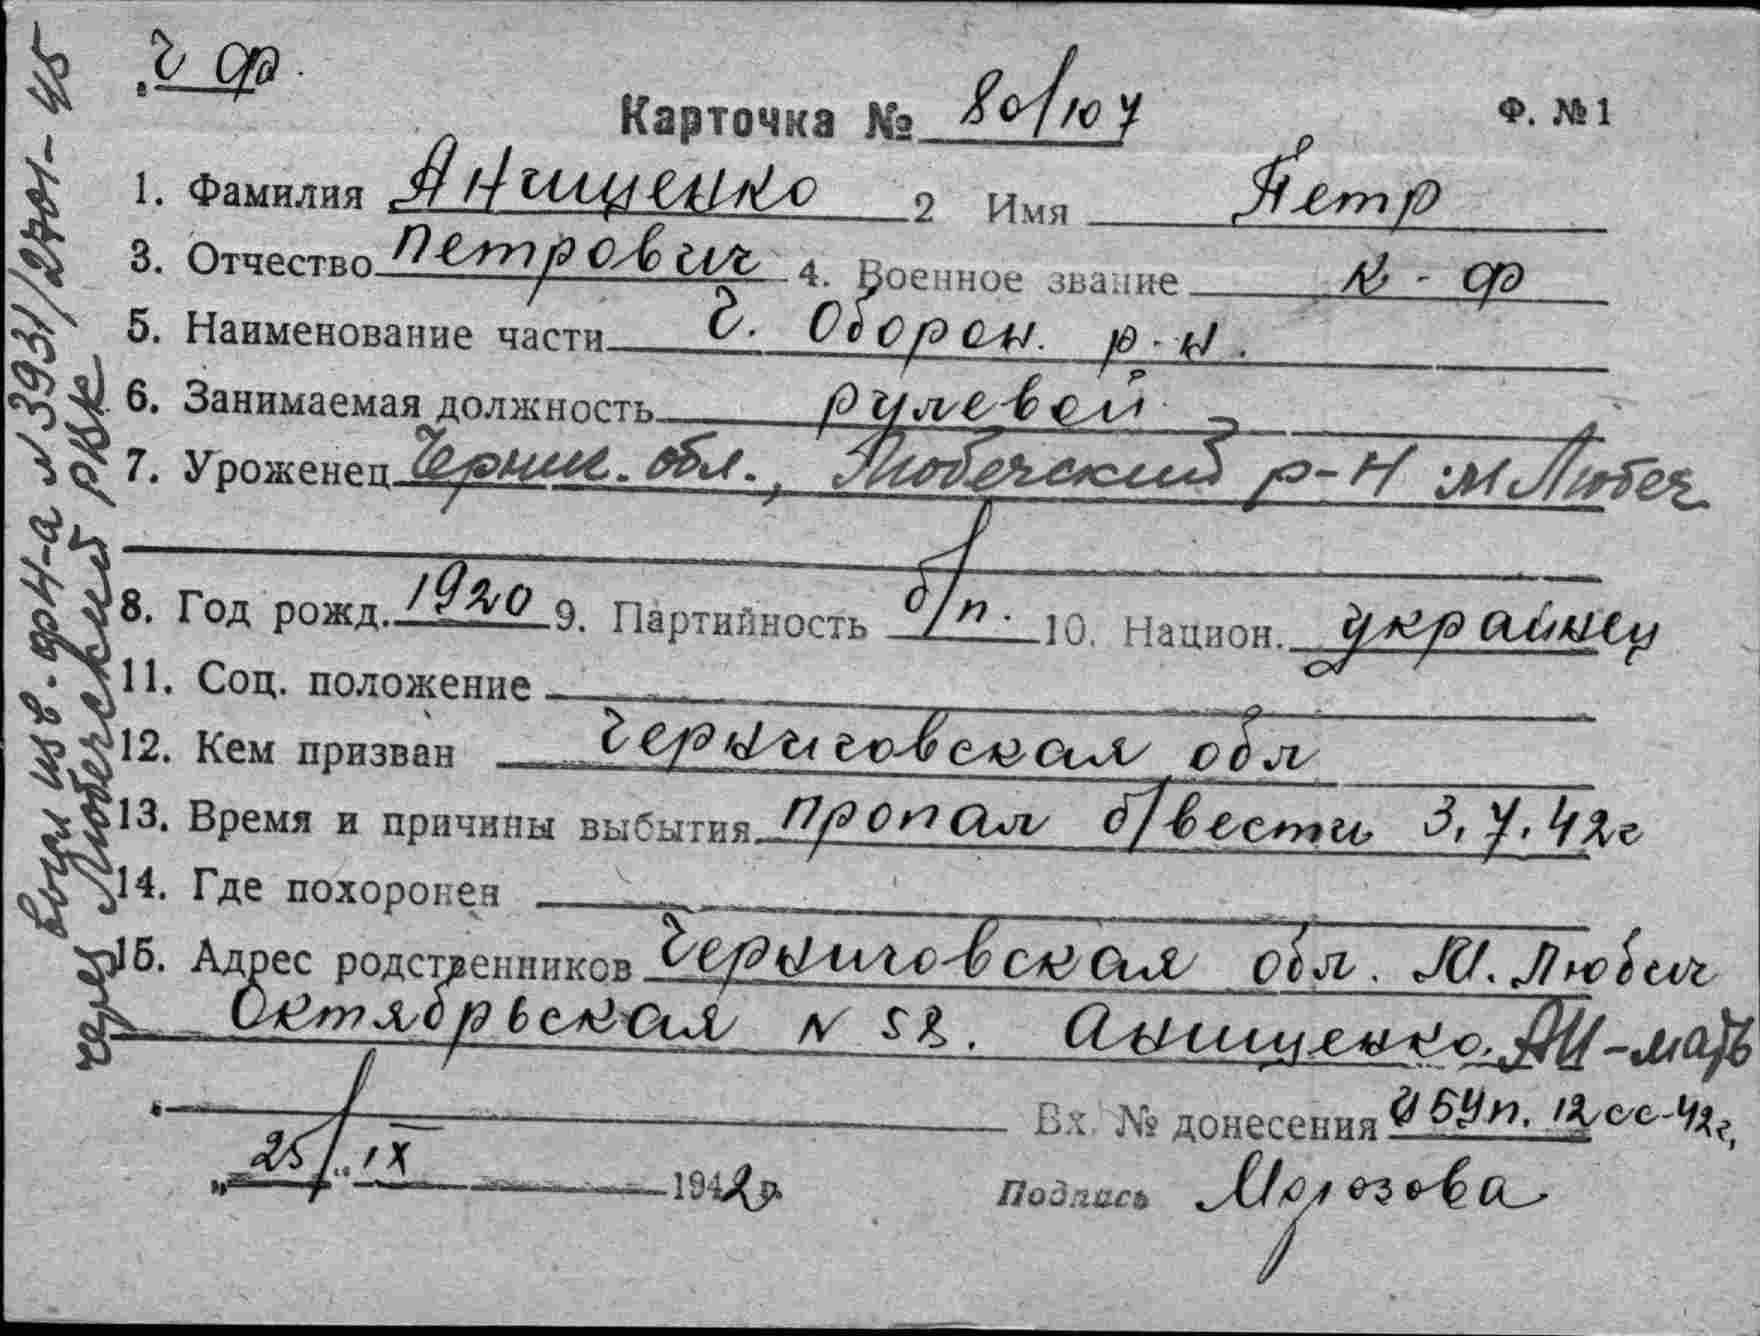 Ч Ф.
Карточка № 80/107
Ф. №1
1. Фамилия Анищенко 2 Имя Петр
3. Отчество Петрович 4. Военное звание к-ф
5. Наименование части Ч. Оборон. р-н.
6. Занимаемая должность рулевой
7. Уроженец Черниг. обл., Любечский р-н м Любеч
8. Год рожд. 1920 9. Партийность б/п. 10. Национ. украинец
11. Соц. положение
12. Кем призван Черниговская обл
13. Время и причины выбытия пропал б/вести 3.7.42г
14. Где похоронен
15. Адрес родственников Черниговская обл. М. Любич
Октябрьская N 58. Анищенко АИ-мать
Вх. № донесения 12сс-42г,
"25/" IX 1942г.
Подпись Морозова
изв. ф4-а N 3931/2701-45
через Любечский РВК